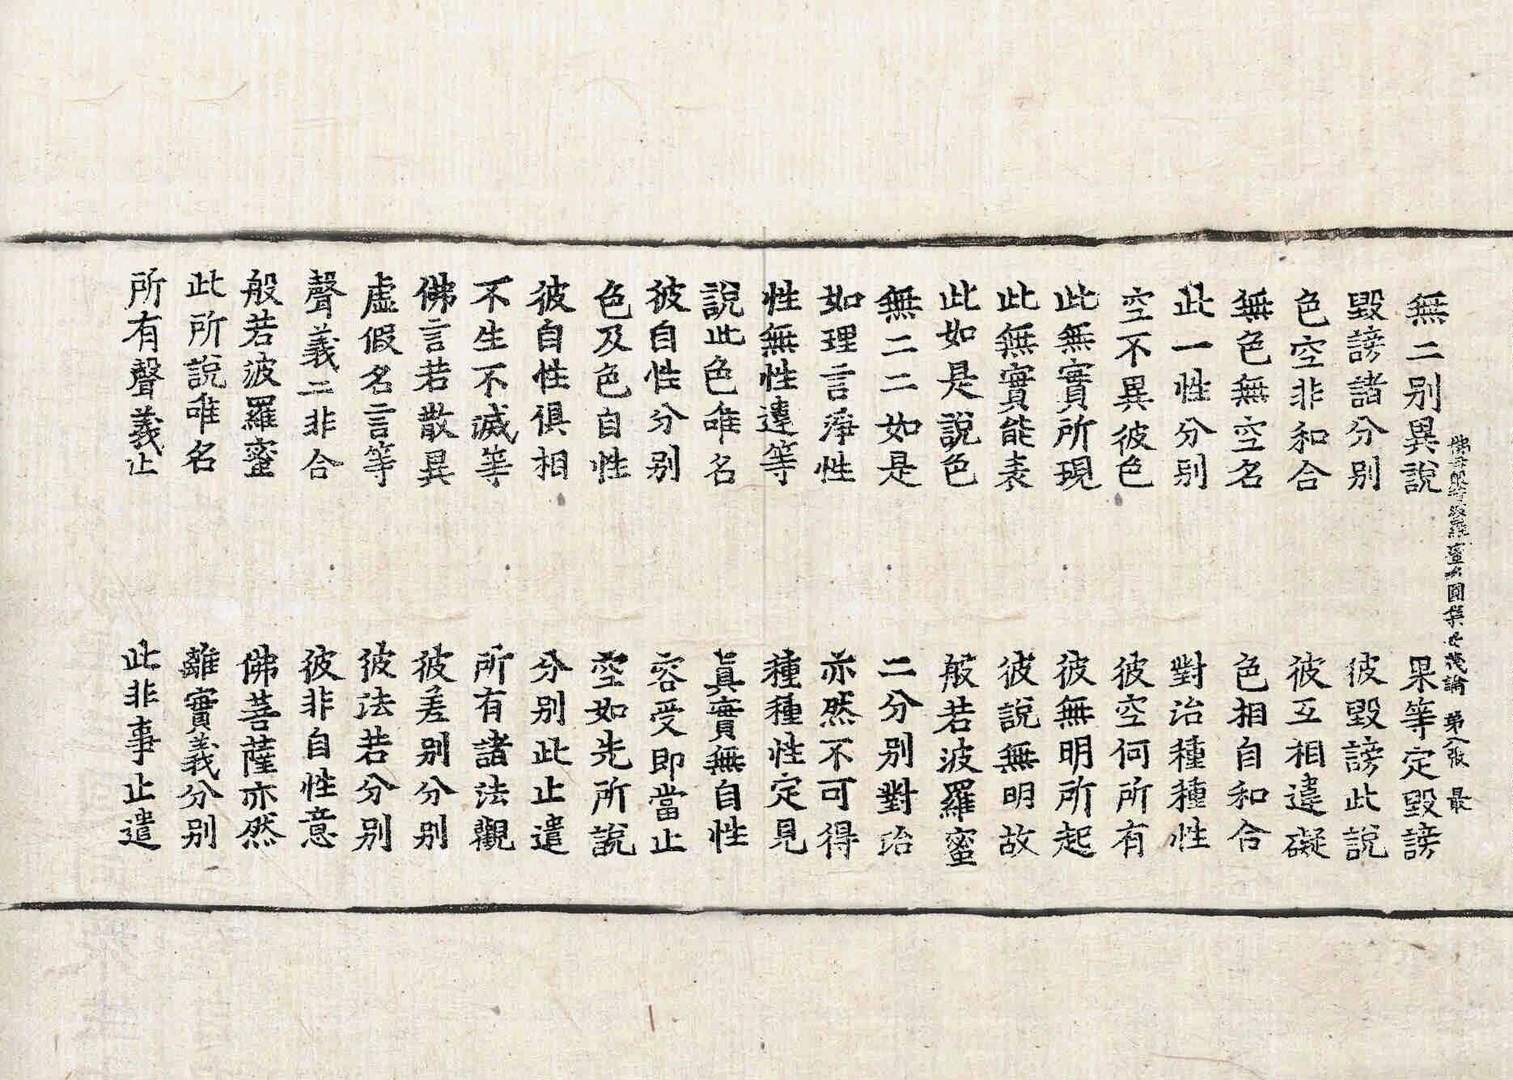 佛母般若波羅蜜多圓集要義論 第八張 最
無二别異說 果等定毀謗
毀謗諸分别 彼毀謗此說
色空非和合 彼互相違礙
無色無空名 色相自和合
此一性分别 對治種種性
空不異彼色 彼空何所有
此無實所現 彼無明所起
此無實能表 彼說無明故
此如是說色 般若波羅蜜
無二二如是 二分别對治
如理言淨性 亦然不可得
性無性違等 種種性定見
說此色唯名 眞實無自性
彼自性分别 容受即當止
色及色自性 空如先所說
彼自性俱相 分别此止遣
不生不滅等 所有諸法觀
佛言若散異 彼差别分别
虛假名言等 彼法若分别
聲義二非合 彼非自性意
般若波羅蜜 佛菩薩亦然
此所說唯名 離實義分别
所有聲義止 此非事止遣